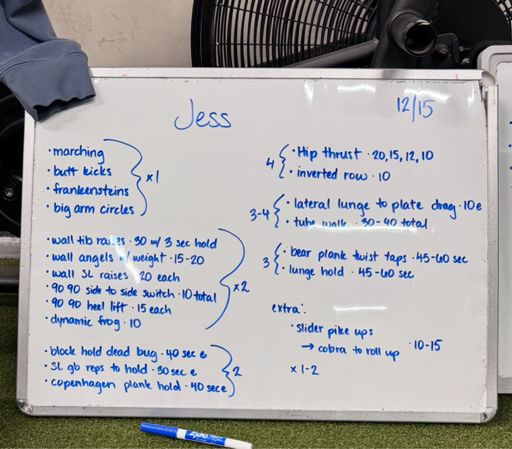 Jess
12/15
• marching
• butt kicks
• frankensteins
• big arm circles
x1
• wall tib raises · 30 w/ 3 sec hold
• wall angels w/ weight · 15-20
• wall SL raises · 20 each
• 90 90 side to side switch · 10 total
• 90 90 heel lift · 15 each
• dynamic frog · 10
x2
• block hold dead bug · 40 sec e
• SL gb reps to hold · 30 sec e
• copenhagen plank hold · 40 sec e
2
4
• Hip thrust · 20, 15, 12, 10
• inverted row · 10
3-4
• lateral lunge to plate drag · 10 e
• tube walk · 30-40 total
3
• bear plank twist taps · 45-60 sec
• lunge hold · 45-60 sec
extra:
• slider pike ups
→ cobra to roll up · 10-15
x 1-2
EXPO